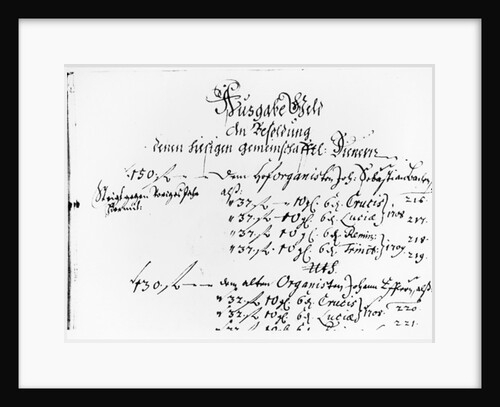 Ausgabe Geld
An Besoldung
denen hiesigen gemeinschafftl: Dienern
150 fl — dem Hoforganisten Joh. Sebastian Bachen,
als:
37. fl 10 gl. 6 d. Crucis 216.
37. fl 10 gl. 6 d. Luciæ 1708 217.
37. fl 10 gl. 6 d. Remin: 218.
37. fl 10 gl. 6 d. Trinit: 1709. 219.
Uts.
130 fl — dem alten Organisten Johann Efflern, alß
32 fl 10 gl. 6 d. Crucis 220
32 fl 10 gl. 6 d. Luciæ 1708. 221.